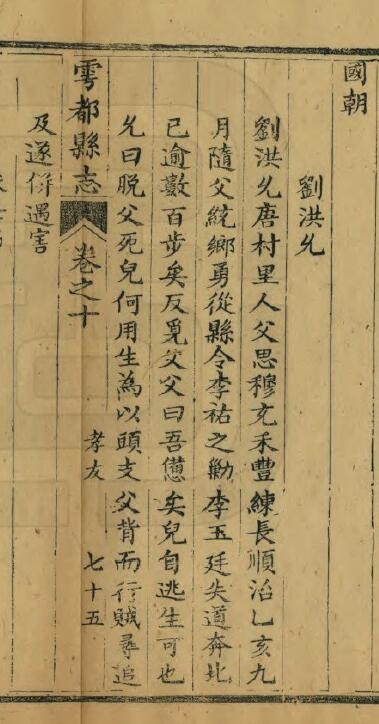 國朝
劉洪允
劉洪允唐村里人父思穆充禾豐練長順治乙亥九
月隨父統鄉勇從縣令李祐之勦李玉廷失道奔北
已逾數百步矣反覓父父曰吾憊矣兒自逃生可也
允曰脫父死兒何用生為以頭支父背而行賊尋追
雩都縣志 卷之十 孝友 七十五
及遂併遇害